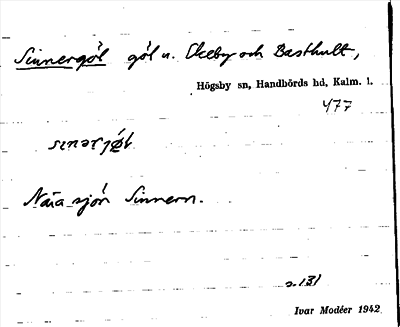 Sinnergöl göl n. Ekeby och Basthult,
Högsby sn, Handbörds hd, Kalm. l.
477
Nära sjön Sinnern.
s. 131
Ivar Modéer 1942